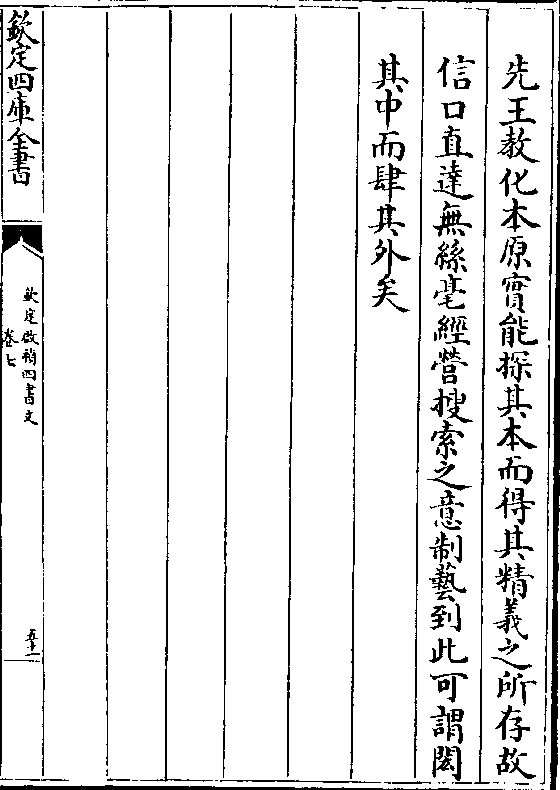 先王教化本原實能探其本而得其精義之所存故
信口直達無絲毫經營搜索之意制藝到此可謂閎
其中而肆其外矣
欽定四庫全書
欽定啟禎四書文
卷七
五十一